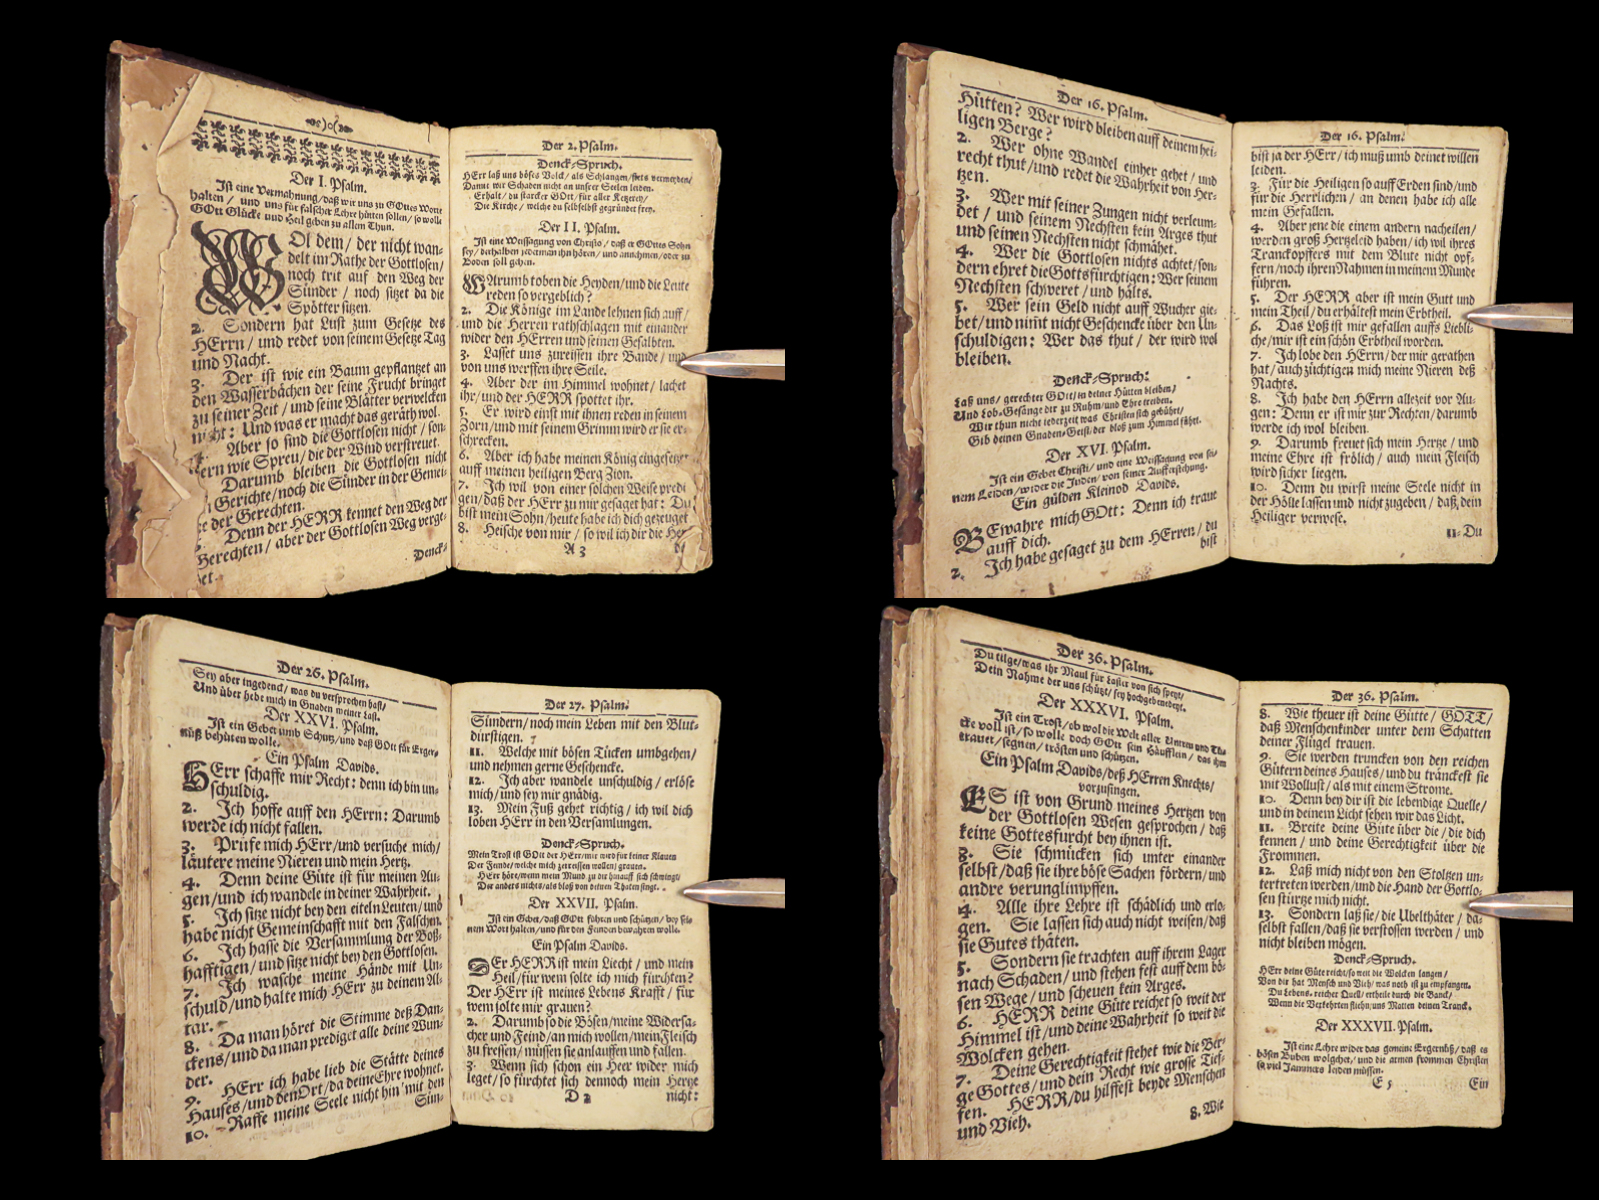 Der I. Psalm.
Ist eine Vermahnung/daß wir uns zu GOttes Wort
halten / und uns für falscher Lehre hüten sollen / so wolle
GOtt Glücke und Heil geben zu allem Thun.
WOl dem/ der nicht wan-
delt im Rathe der Gottlosen/
noch trit auf den Weg der
Sünder / noch sitzet da die
Spötter sitzen.
2. Sondern hat Lust zum Gesetze des
HErrn / und redet von seinem Gesetze Tag
und Nacht.
3. Der ist wie ein Baum gepflantzet an
den Wasserbächen der seine Frucht bringet
zu seiner Zeit / und seine Blätter verwelcken
nicht: Und was er macht das geräth wol.
4. Aber so sind die Gottlosen nicht / son-
ern wie Spreu / die der Wind verstreuet.
Darumb bleiben die Gottlosen nicht
Gerichte/noch die Sünder in der Gemei-
e der Gerechten.
Denn der HERR kennet den Weg der
Gerechten / aber der Gottlosen Weg verge-
et.
Denck-
Der 2. Psalm.
Denck-Spruch.
HErr laß uns böses Volck / als Schlangen/stets vermeyden/
Damit wir Schaden nicht an unser Seelen leiden.
Erhalt / du starcker GOtt/ für aller Ketzerey/
Die Kirche / welche du selbselbst gegründet frey.
Der II. Psalm.
Ist eine Weissagung von Christo / daß er GOttes Sohn
sey/ derhalben jederman ihn hören/ und annehmen/oder zu
Boden soll gehen.
WArumb toben die Heyden/und die Leute
reden so vergeblich?
2. Die Könige im Lande lehnen sich auff/
und die Herren rathschlagen mit einander
wider den HErren und seinen Gesalbten.
3. Lasset uns zureissen ihre Bande / und
von uns werffen ihre Seile.
4. Aber der im Himmel wohnet / lachet
ihr/und der HERR spottet ihr.
5. Er wird einst mit ihnen reden in seinem
Zorn/und mit seinem Grimm wird er sie er-
schrecken.
6. Aber ich habe meinen König eingesetzet
auff meinen heiligen Berg Zion.
7. Ich wil von einer solchen Weise predi
gen/daß der HErr zu mir gesaget hat: Du
bist mein Sohn/heute habe ich dich gezeuget
8. Heische von mir / so wil ich dir die Hey
A 3
Der 16. Psalm.
Hütten? Wer wird bleiben auff deinem hei-
ligen Berge?
2. Wer ohne Wandel einher gehet / und
recht thut/und redet die Wahrheit von Her-
tzen.
3. Wer mit seiner Zungen nicht verleum-
det / und seinem Nechsten kein Arges thut
und seinen Nechsten nicht schmähet.
4. Wer die Gottlosen nichts achtet/son-
dern ehret die Gottsfürchtigen: Wer seinem
Nechsten schweret / und hälts.
5. Wer sein Geld nicht auff Wucher gie-
bet/und nimt nicht Geschencke über den Un-
schuldigen: Wer das thut / der wird wol
bleiben.
Denck-Spruch:
Laß uns/ gerechter GOtt/in deiner Hütten bleiben/
Und Lob-Gesänge dir zu Ruhm/und Ehre treiben.
Wir thun nicht jederzeit was Christen sich gebührt/
Gib deinen Gnaden-Geist/ der bloß zum Himmel führt.
Der XVI. Psalm.
Ist ein Gebet Christi/ und eine Weissagung von sei-
nem Leiden/wider die Juden/ von seiner Aufferstehung.
Ein gülden Kleinod Davids.
BEwahre mich GOtt: Denn ich traue
auff dich.
2. Ich habe gesaget zu dem HErren/ du
bist
Der 16. Psalm.
bist ja der HErr / ich muß umb deinet willen
leiden.
3. Für die Heiligen so auff Erden sind/und
für die Herrlichen / an denen habe ich alle
mein Gefallen.
4. Aber jene die einem andern nacheilen/
werden groß Hertzeleid haben/ ich wil ihres
Tranckopffers mit dem Blute nicht opf-
fern/noch ihren Nahmen in meinem Munde
führen.
5. Der HERR aber ist mein Gutt und
mein Theil/du erhältest mein Erbtheil.
6. Das Loß ist mir gefallen auffs Liebli-
che/mir ist ein schön Erbtheil worden.
7. Ich lobe den HErrn/der mir gerathen
hat/ auch züchtigen mich meine Nieren deß
Nachts.
8. Ich habe den HErrn allezeit vor Au-
gen: Denn er ist mir zur Rechten/darumb
werde ich wol bleiben.
9. Darumb freuet sich mein Hertze / und
meine Ehre ist frölich/ auch mein Fleisch
wird sicher liegen.
10. Denn du wirst meine Seele nicht in
der Hölle lassen und nicht zugeben / daß dein
Heiliger verwese.
11. Du
Der 26. Psalm.
Sey aber ingedenck / was du versprochen hast/
Und über hebe mich in Gnaden meiner Last.
Der XXVI. Psalm.
Ist ein Gebet umb Schutz/und daß GOtt für Erger-
nüß behüten wolle.
Ein Psalm Davids.
HErr schaffe mir Recht: denn ich bin un-
schuldig.
2. Ich hoffe auff den HErrn: Darumb
werde ich nicht fallen.
3. Prüfe mich HErr/und versuche mich/
läutere meine Nieren und mein Hertz.
4. Denn deine Güte ist für meinen Au-
gen/und ich wandele in deiner Wahrheit.
5. Ich sitze nicht bey den eiteln Leuten/ und
habe nicht Gemeinschafft mit den Falschen.
6. Ich hasse die Versammlung der Boß-
hafftigen/ und sitze nicht bey den Gottlosen.
7. Ich wasche meine Hände mit Un-
schuld/und halte mich HErr zu deinem Al-
tar.
8. Da man höret die Stimme deß Dan-
ckens/und da man prediget alle deine Wun-
der.
9. HErr ich habe lieb die Stätte deines
Hauses/und den Ort/da deine Ehre wohnet.
10. Raffe meine Seele nicht hin mit den
Sün-
Der 27. Psalm.
Sündern/noch mein Leben mit den Blut-
dürstigen.
11. Welche mit bösen Tücken umbgehen/
und nehmen gerne Geschencke.
12. Ich aber wandele unschuldig / erlöse
mich/und sey mir gnädig.
13. Mein Fuß gehet richtig / ich wil dich
loben HErr in den Versamlungen.
Denck-Spruch.
Mein Trost ist GOtt der HErr/mir wird für keiner Klauen
Der Feinde/welche mich zerreissen wollen/ grauen.
HErr höre/wenn mein Mund zu dir hinauff sich schwingt/
Der anders nichts/als bloß von deinen Thaten singt.
Der XXVII. Psalm.
Ist ein Gebet/daß GOtt führen und schützen/ bey sei-
nem Wort halten/ und für den Feinden bewahren wolle.
Ein Psalm Davids.
DEr HERR ist mein Liecht / und mein
Heil/für wem solte ich mich fürchten?
Der HErr ist meines Lebens Krafft / für
wem solte mir grauen?
2. Darumb so die Bösen/meine Widersa-
cher und Feind/an mich wollen/mein Fleisch
zu fressen/ müssen sie anlauffen und fallen.
3. Wenn sich schon ein Heer wider mich
leget/so fürchtet sich dennoch mein Hertze
D 2 nicht:
Der 36. Psalm.
Du tilge/was ihr Maul für Laster von sich speyt/
Dein Nahme der uns schützt/ sey hochgebenedeyt.
Der XXXVI. Psalm.
Ist ein Trost/ob wol die Welt aller Untreu und Tü-
cke voll ist/ so wolle doch GOtt sein Häufflein / das ihm
trauet/segnen/ trösten und schützen.
Ein Psalm Davids/deß HErren Knechts/
vorzusingen.
ES ist von Grund meines Hertzen von
der Gottlosen Wesen gesprochen/ daß
keine Gottesfurcht bey ihnen ist.
3. Sie schmücken sich unter einander
selbst/daß sie ihre böse Sachen fördern/und
andre verunglimpffen.
4. Alle ihre Lehre ist schädlich und erlo-
gen. Sie lassen sich auch nicht weisen/daß
sie Gutes thäten.
5. Sondern sie trachten auff ihrem Lager
nach Schaden/ und stehen fest auff dem bö-
sen Wege / und scheuen kein Arges.
6. HERR deine Güte reichet so weit der
Himmel ist/und deine Wahrheit so weit die
Wolcken gehen.
7. Deine Gerechtigkeit stehet wie die Ber-
ge Gottes/ und dein Recht wie grosse Tief-
fen. HERR/du hilffest beyde Menschen
und Vieh.
8. Wie
Der 36. Psalm.
8. Wie theuer ist deine Gütte / GOTT/
daß Menschenkinder unter dem Schatten
deiner Flügel trauen.
9. Sie werden truncken von den reichen
Gütern deines Hauses/und du tränckest sie
mit Wollust / als mit einem Strome.
10. Denn bey dir ist die lebendige Quelle/
und in deinem Licht sehen wir das Licht.
11. Breite deine Güte über die / die dich
kennen / und deine Gerechtigkeit über die
Frommen.
12. Laß mich nicht von den Stoltzen un-
tertreten werden/und die Hand der Gottlo-
sen stürtze mich nicht.
13. Sondern laß sie/ die Ubelthäter / da-
selbst fallen/daß sie verstossen werden / und
nicht bleiben mögen.
Denck-Spruch.
HErr deine Güte reicht/so weit die Wolcken langen /
Von dir hat Mensch und Vieh/ was noth ist zu empfangen.
Du Lebens-reicher Quell/ ertheile durch die Band/
Wenn die Verkehrten fliehn/uns Matten deinen Tranck.
Der XXXVII. Psalm.
Ist eine Lehre wider das gemeine Ergernüß/ daß es
bösen Buben wolgehet/ und die armen frommen Christen
so viel Jammers leiden müssen.
E 5 Ein